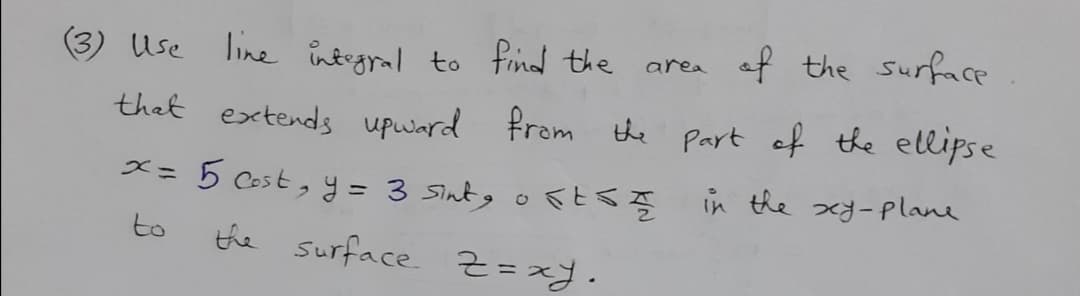 (3) Use line integral to find the area of the surface
that extends upward from the part of the ellipse
x = 5 cost, y = 3 sint, 0 ≤ t ≤ π/2 in the xy-plane
to the surface z = xy.